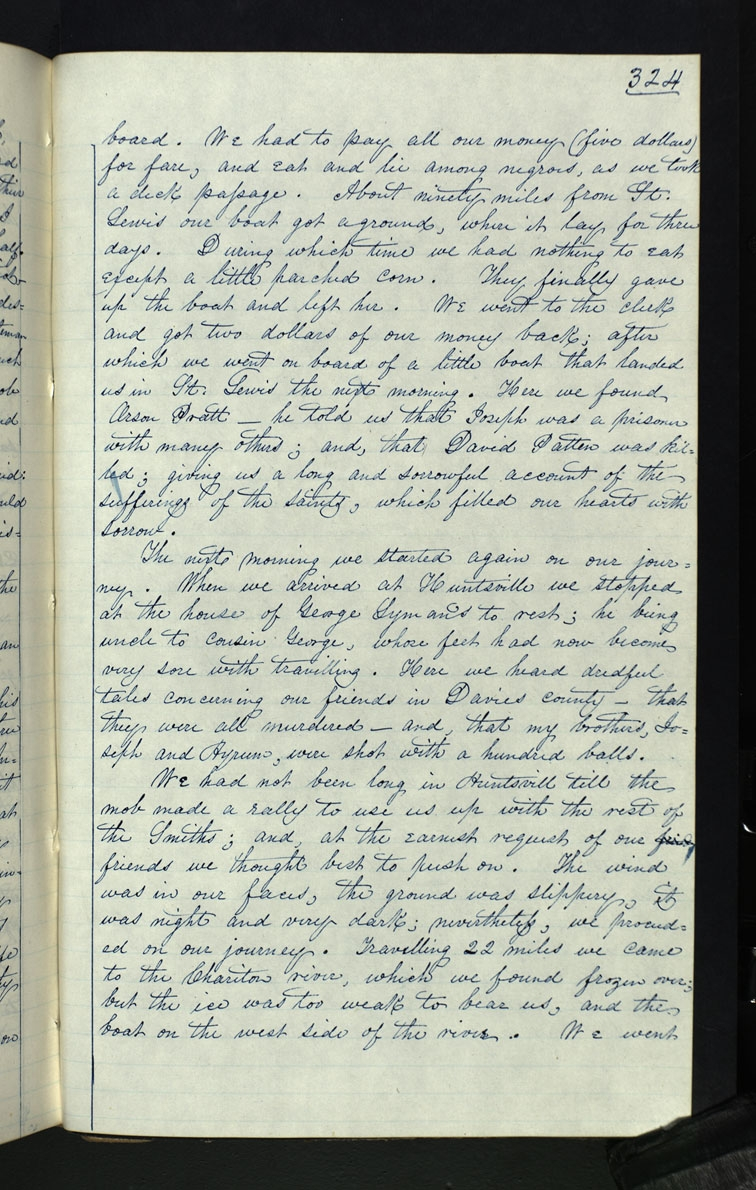 324
board. We had to pay all our money (five dollars)
for fare, and eat and lie among negros, as we took
a deck passage. About ninety miles from St.
Lewis our boat got aground, where it lay for three
days. During which time we had nothing to eat
except a little parched corn. They finally gave
up the boat and left her. We went to the clerk
and got two dollars of our money back; after
which we went on board of a little boat that landed
us in St. Lewis the next morning. Here we found
Orson Pratt — he told us that Joseph was a prisoner
with many others; and, that David Patten was kil=
led; giving us a long and sorrowful account of the
sufferings of the saints, which filled our hearts with
sorrow.
The next morning we started again on our jour=
ney. When we arrived at Huntsville we stopped
at the house of George Lyman's to rest; he being
uncle to cousin George, whose feet had now become
very sore with travilling. Here we heard dredful
tales concerning our friends in Davies county — that
they were all murdered — and, that my brothers, Jo=
seph and Hyrum, were shot with a hundred balls.
We had not been long in Huntsvill till the
mob made a rally to use us up with the rest of
the Smiths; and, at the earnest request of our
friends we thought best to push on. The wind
was in our faces, the ground was slippery, it
was night and very dark; nevertheless, we proceed=
ed on our journey. Travelling 22 miles we came
to the Chariton river, which we found frozen over;
but the ice was too weak to bear us, and the
boat on the west side of the river. We went